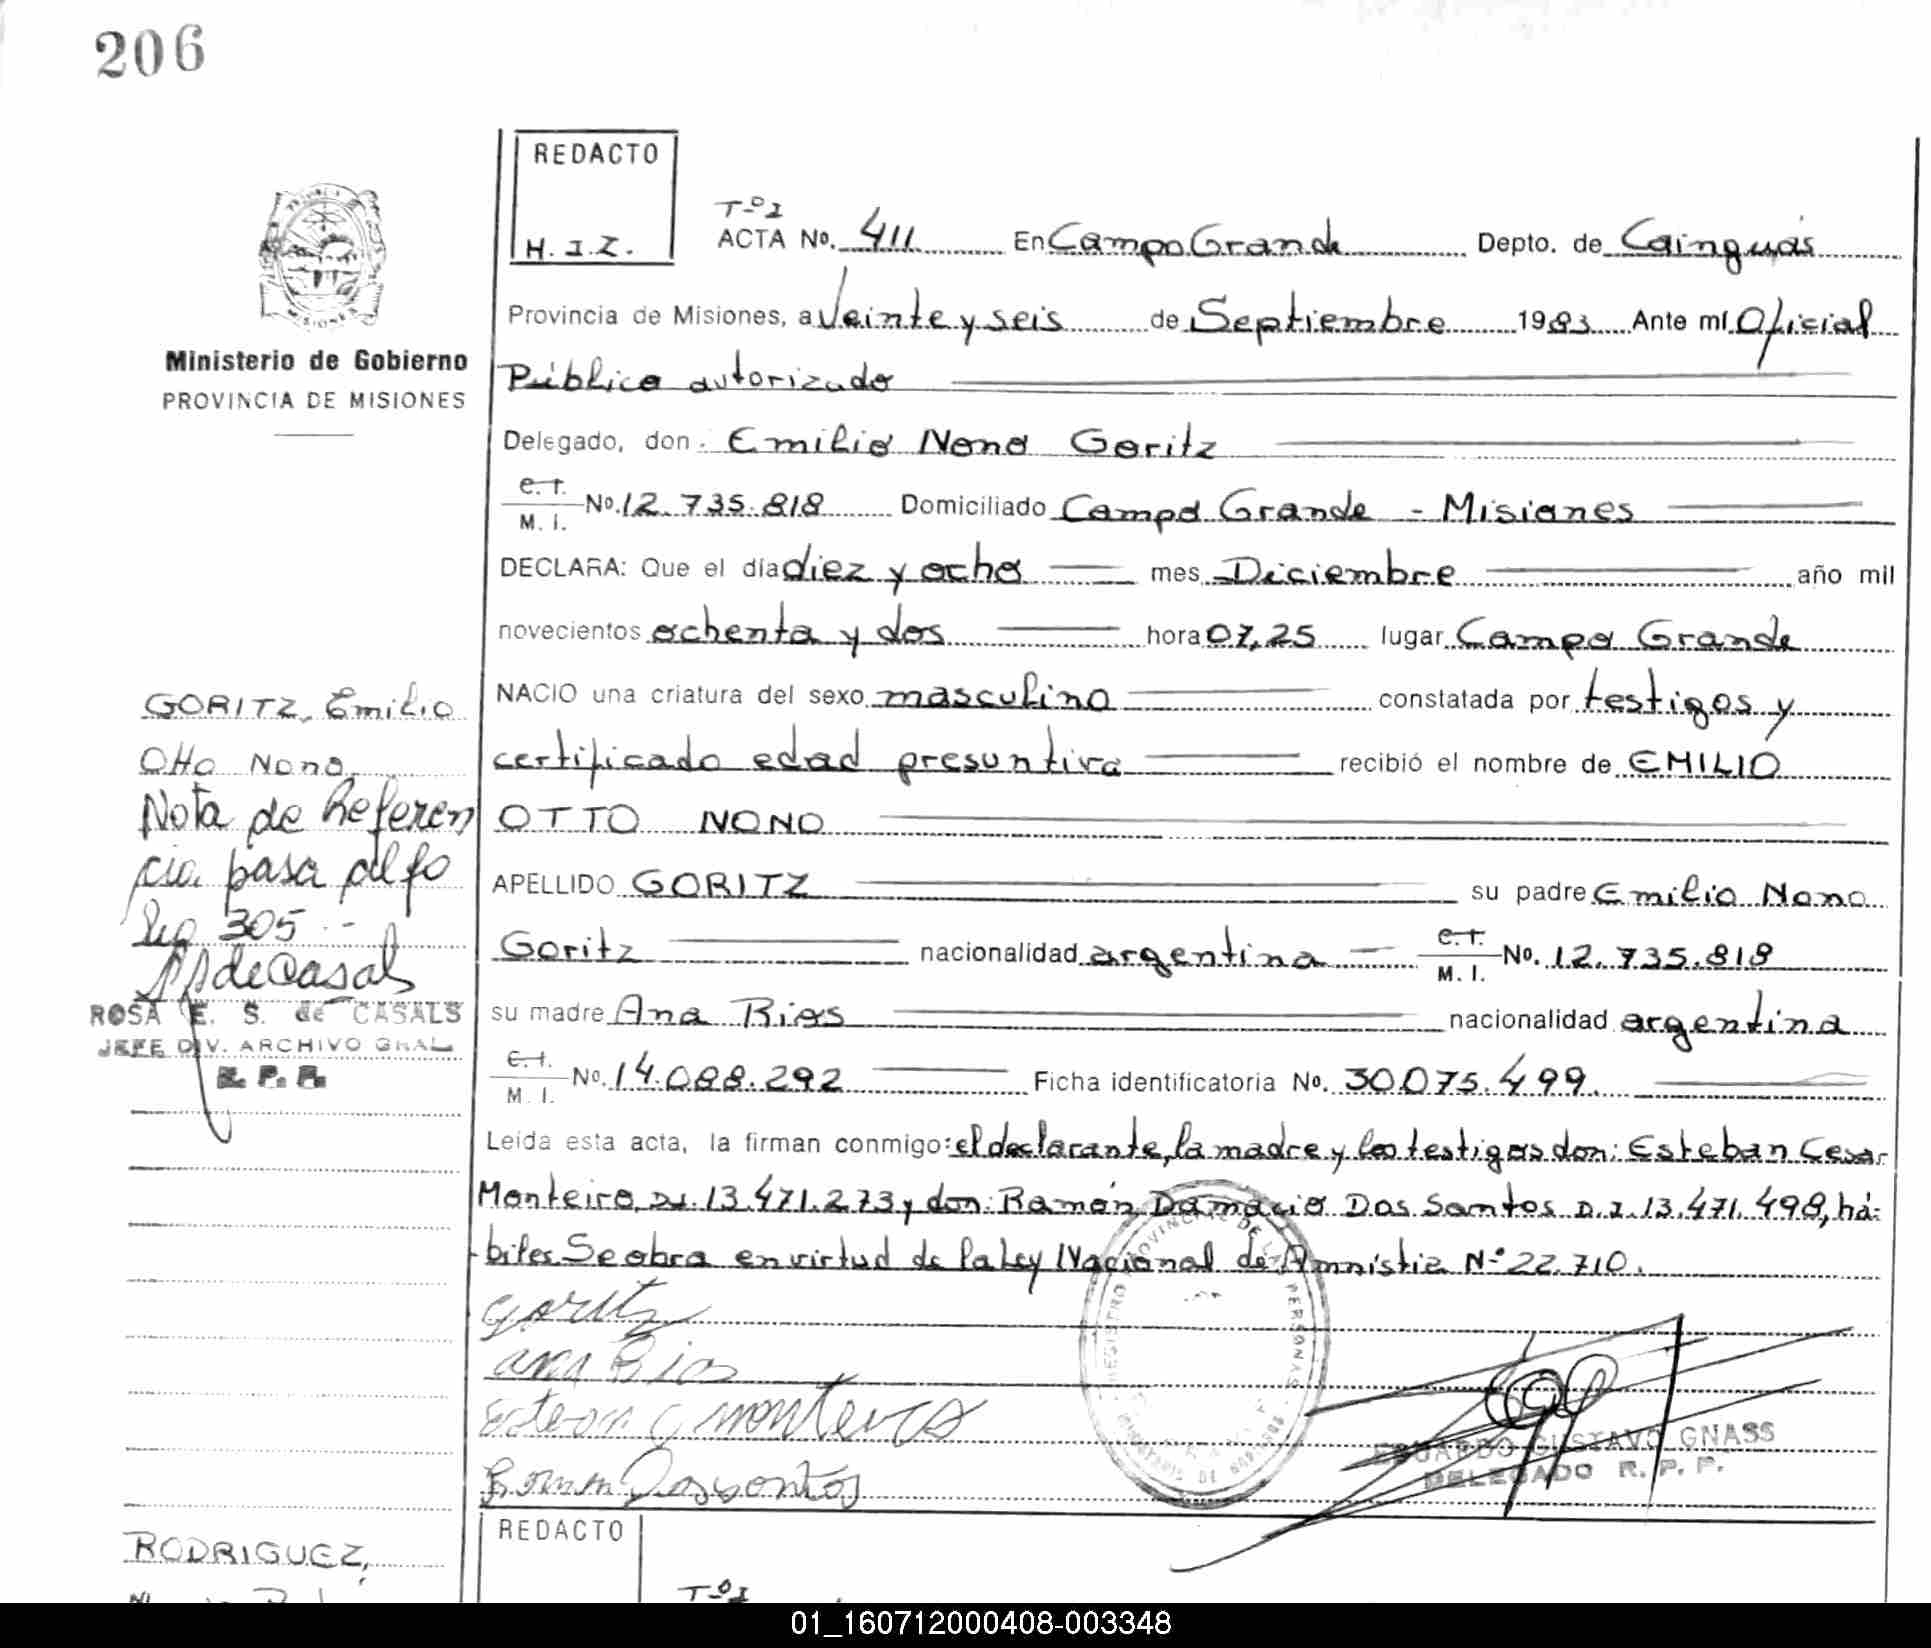 206
REDACTO
H. I. Z.
Tº I
ACTA No. 411 En Campo Grande Depto. de Cainguás
Provincia de Misiones, a Veinte y seis de Septiembre 1983 Ante mí Oficial
Público autorizado
Delegado, don. Emilio Nono Goritz
C. I.
M. I. No. 12.735.818 Domiciliado Campo Grande - Misiones
DECLARA: Que el día diez y ocho mes Diciembre año mil
novecientos ochenta y dos hora 07,25 lugar Campo Grande
NACIO una criatura del sexo masculino constatada por testigos y
certificado edad presuntiva recibió el nombre de EMILIO
OTTO NONO
APELLIDO GORITZ su padre Emilio Nono
Goritz nacionalidad argentina C. I.
M. I. No. 12.735.818
su madre Ana Rios nacionalidad argentina
C. I.
M. I. No. 14.088.292 Ficha identificatoria No. 30.075.499.
Leída esta acta, la firman conmigo: el declarante, la madre y los testigos don: Esteban Cesar
Monteiro D.I. 13.471.273 y don: Ramón Damacio Dos Santos D.I. 13.471.498, há-
biles. Se obra en virtud de la Ley Nacional de Amnistia Nº 22.710.
Goritz
Ana Rios
Esteban C Monteiro
Ramon Dossantos
EDUARDO GUSTAVO GNASS
DELEGADO R. P. P.
REGISTRO PROVINCIAL DE LAS PERSONAS
Ministerio de Gobierno
PROVINCIA DE MISIONES
GORITZ, Emilio
Otto Nono
Nota de Referen
cia pasa al fo
lio 305.-
ROSA E. S. de CASALS
JEFE DIV. ARCHIVO GRAL
R. P. P.
RODRIGUEZ,
REDACTO
Tº I
01_160712000408-003348